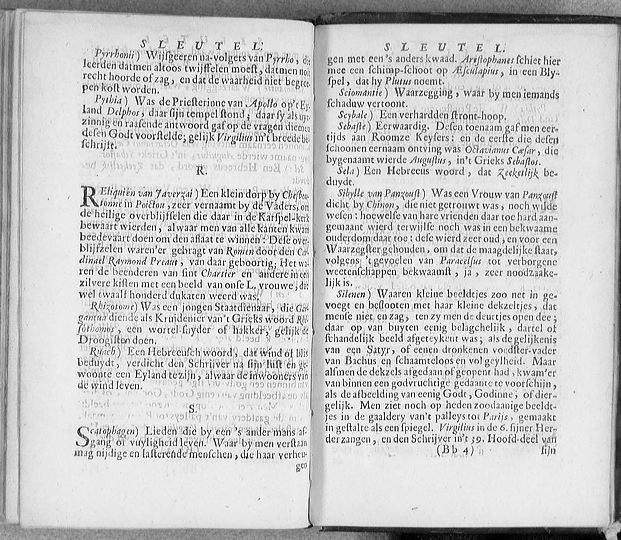 SLEUTEL.
Pyrrhonii) Wijsgeeren na-volgers van Pyrrho, die
leerden datmen altoos twijffelen moest, datmen noit
recht hoorde of zag, en dat de waarheid niet begree-
pen kost worden.
Pythia) Was de Priesterinne van Apollo op't Ey-
land Delphos, daar sijn tempel stond, daar sy als uyt-
zinnig en raasende antwoord gaf op de vragen diemen
desen Godt voorstelde; gelijk Virgilius in't breede be-
schrijft.
R.
REliquien van Javerzai) Een klein dorp by
in Poictou, zeer vernaamt by de Vaders, om
de heilige overblijfselen die daar in de Karspel-kerk
bewaart wierden, alwaar men van alle kanten kwam
beedevaart doen om den aflaat te winnen: Dese over-
blijfzelen waren'er gebragt van Romen door den Ca-
dinael Raymond Preaut, van daar geboortig. Het wa-
ren de beenderen van sint Chartier en andere in een
zilvere kisten met een beeld van onse L. vrouwe, dit
wel twaalf honderd dukaten weerd was.
Rhizotome) Was een jongen Staatdienaar, die Gar-
gantua diende als Kruidenier van't Grieks woord Rhi-
sothomos, een wortel-snyder of hakker, gelijk de
Droogisten doen.
Ruach) Een Hebreeusch woord, dat wind of blist
beduydt, verdicht den Schrijver na sijn lust en ge-
woonte een Eyland te zijn, alwaar de inwooners van
de wind leven.
S.
SCatophagen) Lieden die by een 's ander mans af-
gang of vuyligheid leven. Waar by men verstaan
mag nijdige en lasterende menschen, die haar verheu-
gen
SLEUTEL.
gen met een's anders kwaad. Aristophanes schiet hier
mee een schimp-schoot op Æsculapius, in een Bly-
spel, dat hy Plutus noemt.
Sciomantie) Waarzegging, waar by men iemands
schaduw vertoont.
Scybale) Een verhardden stront-hoop.
Sebaste) Eerwaardig. Desen toenaam gaf men eer-
tijds aan Roomze Keysers: en de eerste die desen
schoonen eernaam ontving was Octavianus Cæsar, die
bygenaamt wierde Augustus, in't Grieks Sebastos.
Sela) Een Hebreeus woord, dat Zeekerlijk be-
duydt.
Sibylle van Panzoust) Was een Vrouw van Panzoust
dicht by Chinon, die niet getrouwt was, noch wilde
wesen: hoewelse van hare vrienden daar toe hard aan-
gemaant wierd terwijlse noch was in een bekwaame
ouderdom daar toe: dese wierd zeer oud, en voor een
Waarzegster gehouden, om dat de maagdelijke staat,
volgens 't gevoelen van Paracelsus tot verborgene
weetenschappen bekwaamst, ja, zeer noodzaake-
lijk is.
Silenen) Waaren kleine beeldtjes zoo net in ge-
voegt en beslooten met haar kleine dekzeltjes, dat
mense niet en zag, ten zy men de deurtjes open dee;
daar op van buyten eenig belagchelijk, dartel of
schandelijk beeld afgeteykent was; als de gelijkenis
van een Satyr, of eenen dronkenen voedster-vader
van Bachus en schaamteloos en vol geylheid. Maar
alsmen de dekzels afgedaan of geopent had, kwam'er
van binnen een godvruchtige gedaante te voorschijn,
als de afbeelding van eenig Godt, Godinne, of dier-
gelijk. Men ziet noch op heden zoodaanige beeldt-
jes in de gaaldery van't palleys tot Parijs, gemaakt
in gestalte als een spiegel. Virgilius in de 6. sijner Her-
derzangen, en den Schrijver in't 39. Hoofd-deel van
(Bb 4) sijn